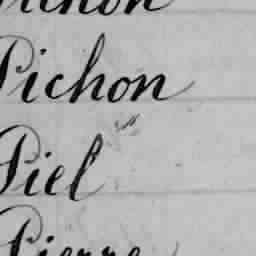 Pichon
Pichon
Piel
Pierre